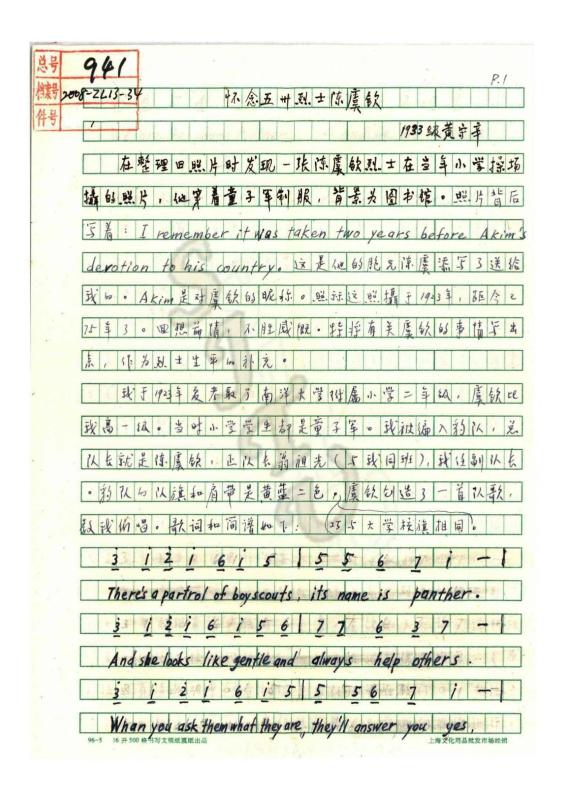 总号 941
档案号 2008-ZL13-34
件号 1
P.1
怀念五卅烈士陈虞钦
1933级黄宗幸
在整理旧照片时发现一张陈虞钦烈士在当年小学操场
摄的照片，他穿着童子军制服，背景为图书馆。照片背后
写着：I remember it was taken two years before Akim's
devotion to his country。这是他的胞兄陈虞添写了送给
我的。Akim是对虞钦的昵称。照说这照摄于1923年，距今已
75年了。回想前情，不胜感慨。特将有关虞钦的事情写出
点，作为烈士生平的补充。
我于1923年夏考取了南洋大学附属小学二年级，虞钦比
我高一级。当时小学学生都是童子军。我被编入豹队，总
队长就是陈虞钦，正队长翁祖光（与我同班），我任副队长
。豹队的队旗和肩带是黄蓝二色，虞钦创造了一首队歌，
教我们唱。歌词和简谱如下：（巧与大学校旗相同。
3 i 2 i 6 i 5 | 5 5 6 7 i — |
There's a partrol of boyscouts, its name is panther.
3 i 2 i 6 i 5 6 | 7 7 6 3 7 — |
And she looks like gentle and always help others.
3 i 2 i 6 i 5 | 5 5 6 7 i — |
Whan you ask them what they are, they'll answer you yes,
96-5 16开500格书写文稿纸 上海文化用品批发市场经销
SSMA